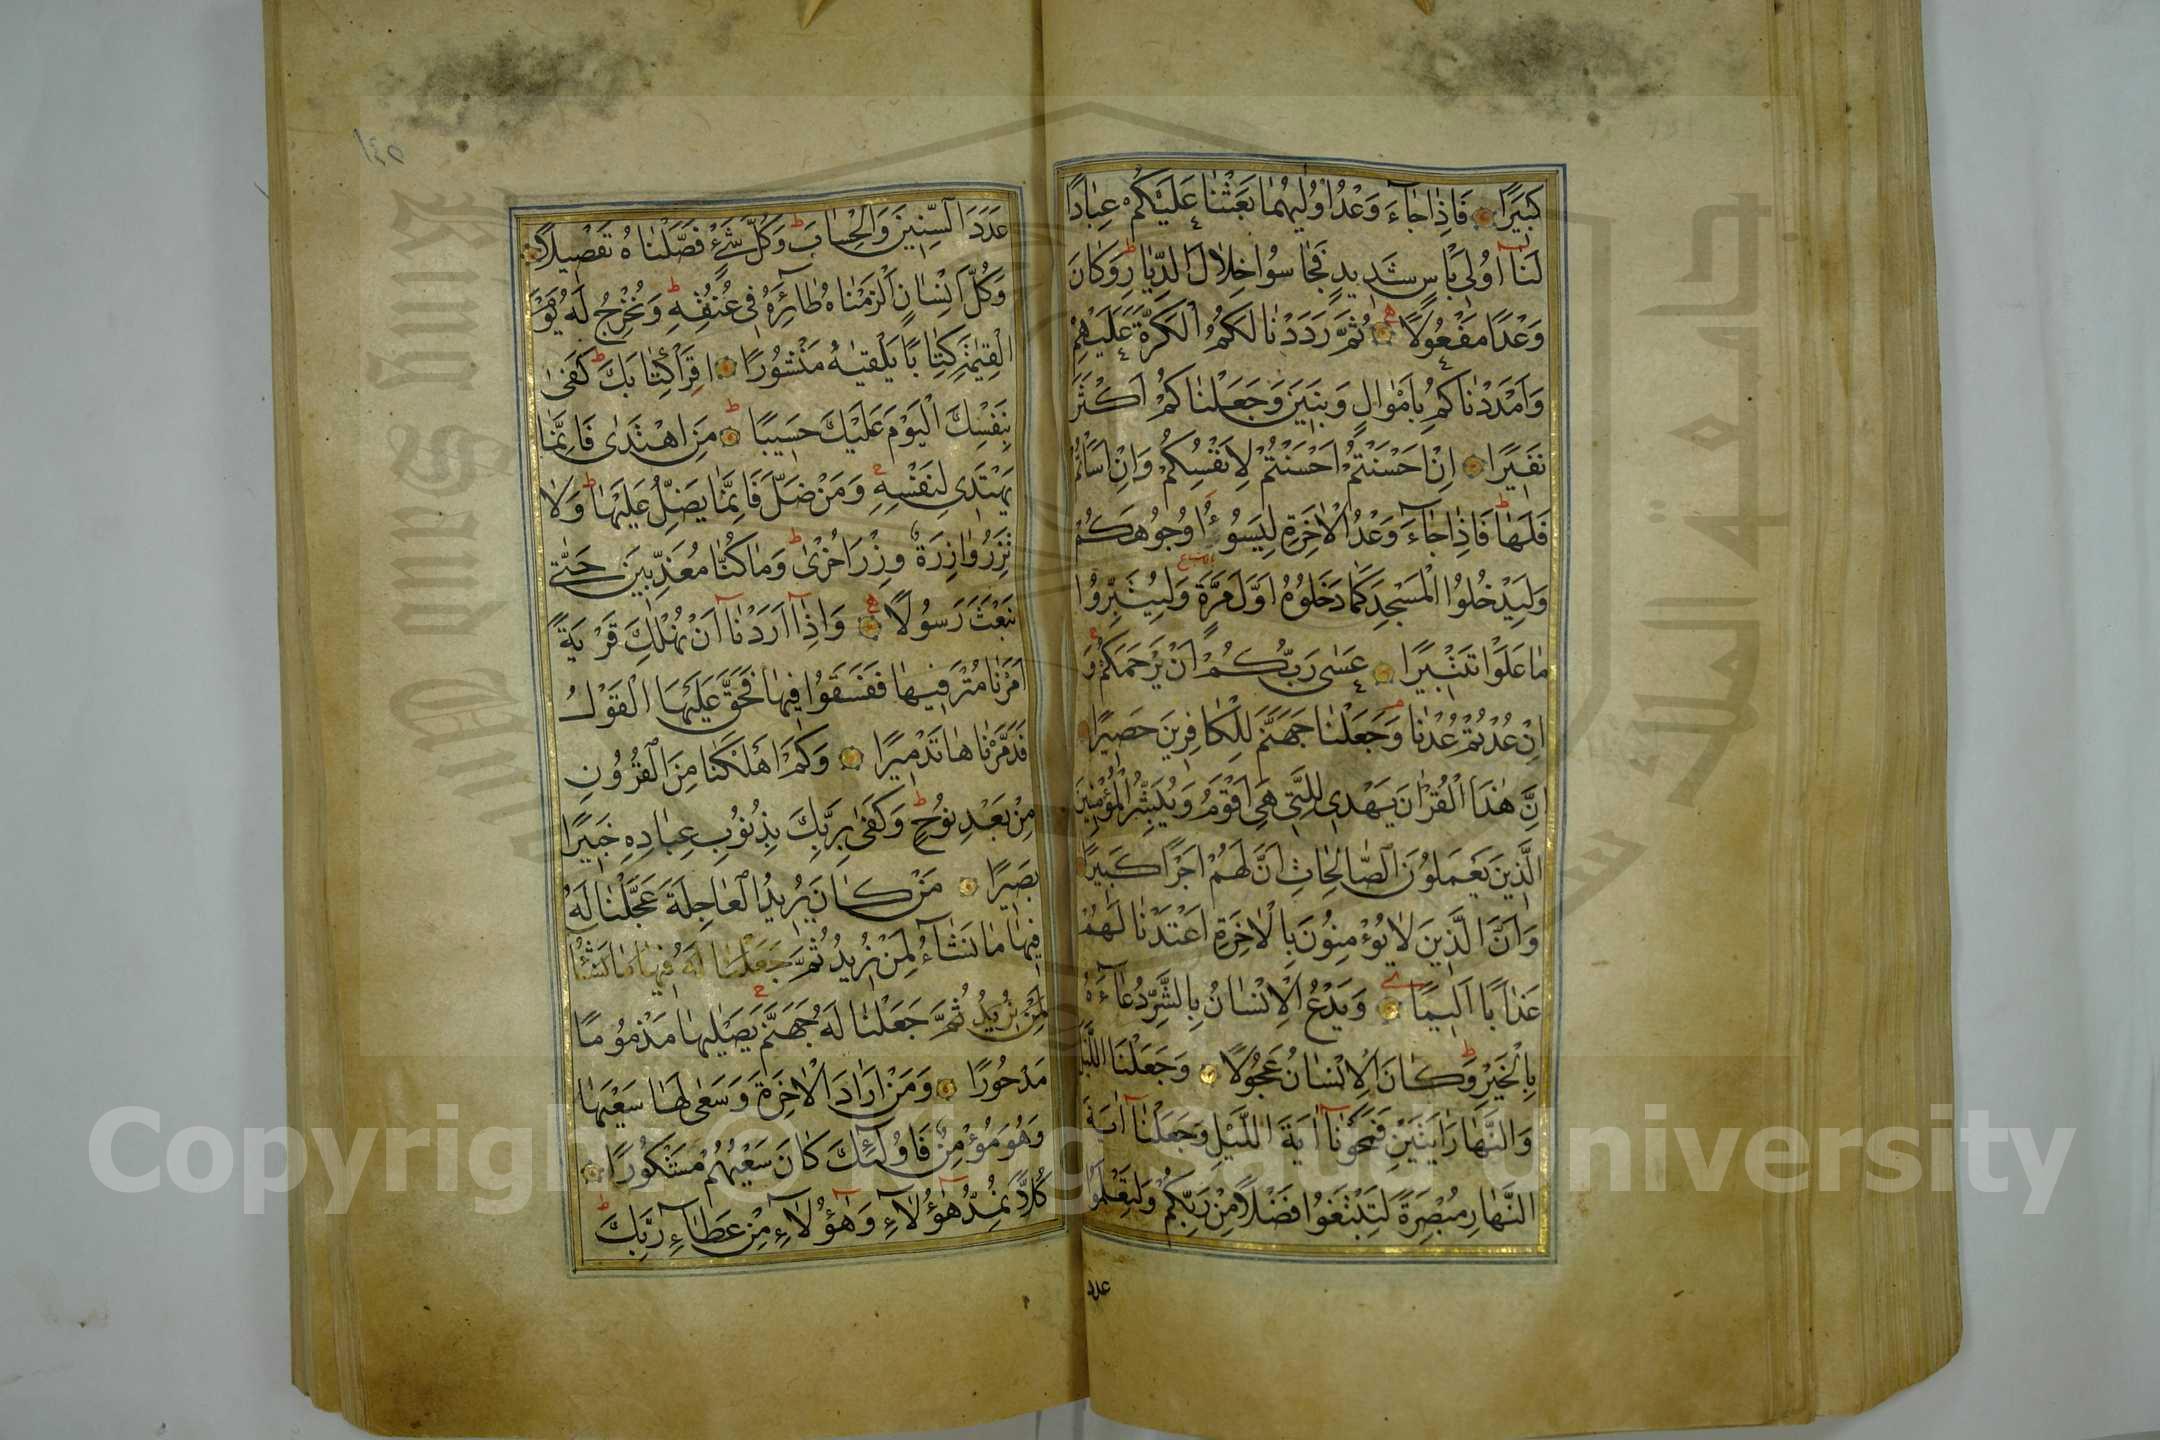 كَبِيرًا فَاِذَا جَاءَ وَعْدُ اوُلٰيهُمَا بَعَثْنَا عَلَيْكُمْ عِبَادًا
لَنَا اُولِى بَاْسٍ شَدِيدٍ فَجَاسُوا خِلَالَ الدِّيَارِ وَكَانَ
وَعْدًا مَفْعُولًا ثُمَّ رَدَدْنَا لَكُمُ الْكَرَّةَ عَلَيْهِمْ
وَاَمْدَدْنَاكُمْ بِاَمْوَالٍ وَبَنِينَ وَجَعَلْنَاكُمْ اَكْثَرَ
نَفِيرًا اِنْ اَحْسَنْتُمْ اَحْسَنْتُمْ لِاَنْفُسِكُمْ وَاِنْ اَسَاْتُمْ
فَلَهَا فَاِذَا جَاءَ وَعْدُ الْاٰخِرَةِ لِيَسُوؤُا وُجُوهَكُمْ
وَلِيَدْخُلُوا الْمَسْجِدَ كَمَا دَخَلُوهُ اَوَّلَ مَرَّةٍ وَلِيُتَبِّرُوا
مَا عَلَوْا تَتْبِيرًا عَسٰى رَبُّكُمْ اَنْ يَرْحَمَكُمْ وَ
اِنْ عُدْتُمْ عُدْنَا وَجَعَلْنَا جَهَنَّمَ لِلْكَافِرِينَ حَصِيرًا
اِنَّ هٰذَا الْقُرْاٰنَ يَهْدِى لِلَّتِى هِىَ اَقْوَمُ وَيُبَشِّرُ الْمُؤْمِنِينَ
الَّذِينَ يَعْمَلُونَ الصَّالِحَاتِ اَنَّ لَهُمْ اَجْرًا كَبِيرًا
وَاَنَّ الَّذِينَ لَا يُؤْمِنُونَ بِالْاٰخِرَةِ اَعْتَدْنَا لَهُمْ
عَذَابًا اَلِيمًا وَيَدْعُ الْاِنْسَانُ بِالشَّرِّ دُعَاءَهُ
بِالْخَيْرِ وَكَانَ الْاِنْسَانُ عَجُولًا وَجَعَلْنَا اللَّيْلَ
وَالنَّهَارَ اٰيَتَيْنِ فَمَحَوْنَا اٰيَةَ اللَّيْلِ وَجَعَلْنَا اٰيَةَ
النَّهَارِ مُبْصِرَةً لِتَبْتَغُوا فَضْلًا مِنْ رَبِّكُمْ وَلِتَعْلَمُوا
عدد
١٤٥
عَدَدَ السِّنِينَ وَالْحِسَابَ وَكُلَّ شَىْءٍ فَصَّلْنَاهُ تَفْصِيلًا
وَكُلَّ اِنْسَانٍ اَلْزَمْنَاهُ طَائِرَهُ فِى عُنُقِهِ وَنُخْرِجُ لَهُ يَوْمَ
الْقِيٰمَةِ كِتَابًا يَلْقٰيهُ مَنْشُورًا اِقْرَاْ كِتَابَكَ كَفٰى
بِنَفْسِكَ الْيَوْمَ عَلَيْكَ حَسِيبًا مَنِ اهْتَدٰى فَاِنَّمَا
يَهْتَدِى لِنَفْسِهِ وَمَنْ ضَلَّ فَاِنَّمَا يَضِلُّ عَلَيْهَا وَلَا
تَزِرُ وَازِرَةٌ وِزْرَ اُخْرٰى وَمَا كُنَّا مُعَذِّبِينَ حَتّٰى
نَبْعَثَ رَسُولًا وَاِذَا اَرَدْنَا اَنْ نُهْلِكَ قَرْيَةً
اَمَرْنَا مُتْرَفِيهَا فَفَسَقُوا فِيهَا فَحَقَّ عَلَيْهَا الْقَوْلُ
فَدَمَّرْنَاهَا تَدْمِيرًا وَكَمْ اَهْلَكْنَا مِنَ الْقُرُونِ
مِنْ بَعْدِ نُوحٍ وَكَفٰى بِرَبِّكَ بِذُنُوبِ عِبَادِهِ خَبِيرًا
بَصِيرًا مَنْ كَانَ يُرِيدُ الْعَاجِلَةَ عَجَّلْنَا لَهُ
فِيهَا مَا نَشَاءُ لِمَنْ نُرِيدُ ثُمَّ جَعَلْنَا لَهُ فِيهَا مَا نَشَاءُ
لِمَنْ نُرِيدُ ثُمَّ جَعَلْنَا لَهُ جَهَنَّمَ يَصْلٰيهَا مَذْمُومًا
مَدْحُورًا وَمَنْ اَرَادَ الْاٰخِرَةَ وَسَعٰى لَهَا سَعْيَهَا
وَهُوَ مُؤْمِنٌ فَاُولٰئِكَ كَانَ سَعْيُهُمْ مَشْكُورًا
كُلًّا نُمِدُّ هٰؤُلَاءِ وَهٰؤُلَاءِ مِنْ عَطَاءِ رَبِّكَ
Copyright © King Saud University